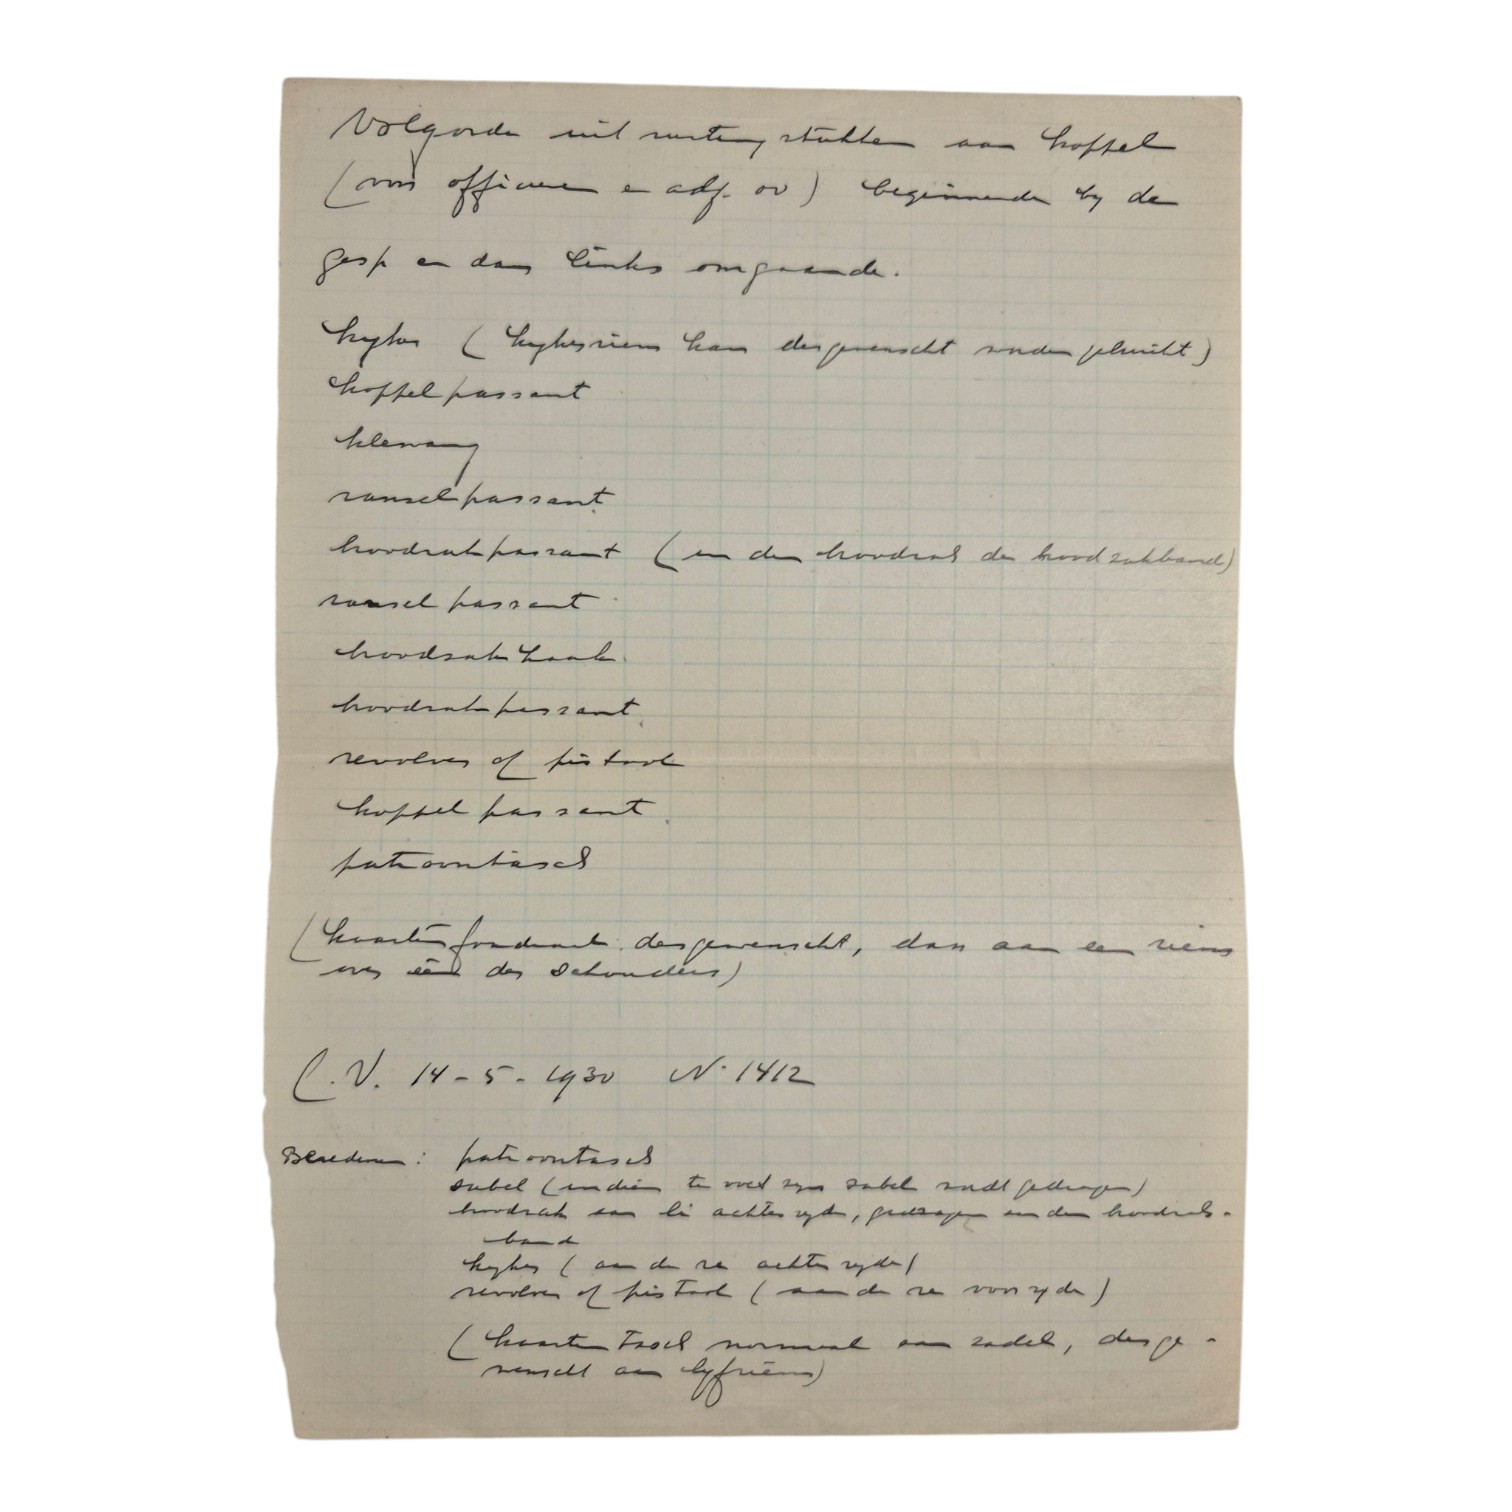 Volgorde uitrustingstukken aan koppel
(voor officieren en adj. oo) beginnende by de
gesp en dan links omgaande.
kyker (kykerriem kan desgewenscht worden gebruikt)
koppelpassant
klewang
ranselpassant
broodzakpassant (en den broodzak de broodzakband)
ranselpassant
broodzakhaak
broodzakpassant
revolver of pistool
koppelpassant
patroontasch
(kaarten desgewenscht, dan aan een riem
over één der schouders)
L.V. 14-5-1930 No 1412
Beredenen: patroontasch
sabel (indien te voet zyn sabel wordt gedragen)
broodzak aan li achterzyde, gedragen aan den broodzak-
band
kyker (aan de re achterzyde)
revolver of pistool (aan de re voorzyde)
(kaartentasch normaal aan zadel, desge-
wenscht aan lyfriem)